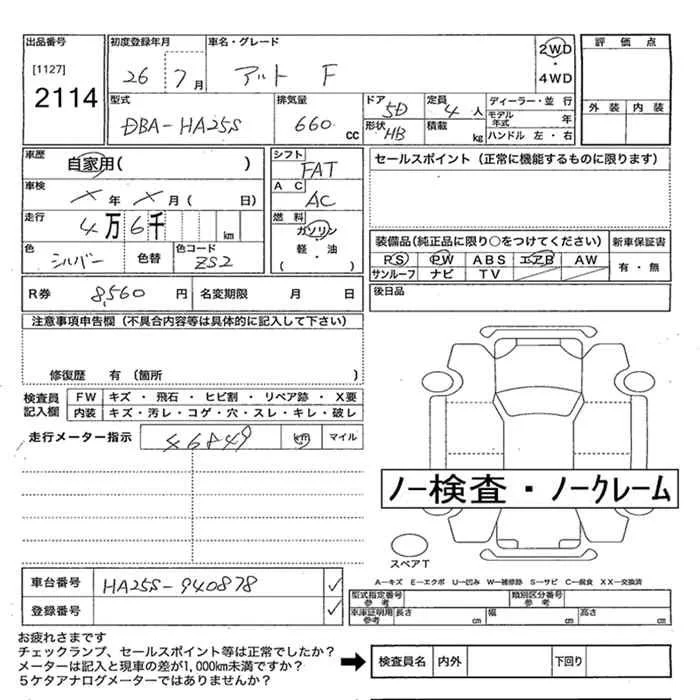 出品番号 初度登録年月 車名・グレード
[1127]
2114
26 7月 アルト F
2WD
・
4WD
評価点
外装 内装
型式 排気量 ドア 定員 ディーラー・並行
DBA-HA25S 660 cc 5D 4人 モデル年式 年
形状 HB 積載 kg ハンドル 左・右
車歴 自家用( )
車検 × 年 × 月( 日)
走行 4万6千 km
色 シルバー 色替 色コード ZS2
シフト FAT
AC AC
燃料 ガソリン
軽・油
( )
セールスポイント(正常に機能するものに限ります)
装備品(純正品に限り○をつけてください) 新車保証書
PS PW ABS エアB AW 有・無
サンルーフ ナビ TV
R券 8,560 円 名変期限 月 日 後日品
注意事項申告欄(不具合内容等は具体的に記入して下さい)
修復歴 有 〔箇所 〕
検査員記入欄 FW キズ・飛石・ヒビ割・リペア跡・X要
内装 キズ・汚レ・コゲ・穴・スレ・キレ・破レ
走行メーター指示 46849 km マイル
ノー検査・ノークレーム
スペアT
A―キズ E―エクボ U―凹み W―補修跡 S―サビ C―腐食 XX―交換済
車台番号 HA25S-940878 ✓
登録番号 ✓
型式指定番号 参考 類別区分番号 参考
車庫証明用 参考 長さ cm 幅 cm 高さ cm
お疲れさまです
チェックランプ、セールスポイント等は正常でしたか?
メーターは記入と現車の差が1,000km未満ですか?
5ケタアナログメーターではありませんか?
➡ 検査員名 内外 下回り